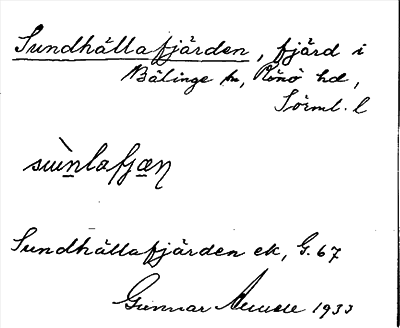 Sundhällafjärden, fjärd i
Bälinge sn, Rönö hd,
Sörml. l
Sundhällafjärden ek, G. 67
Gunnar 1933